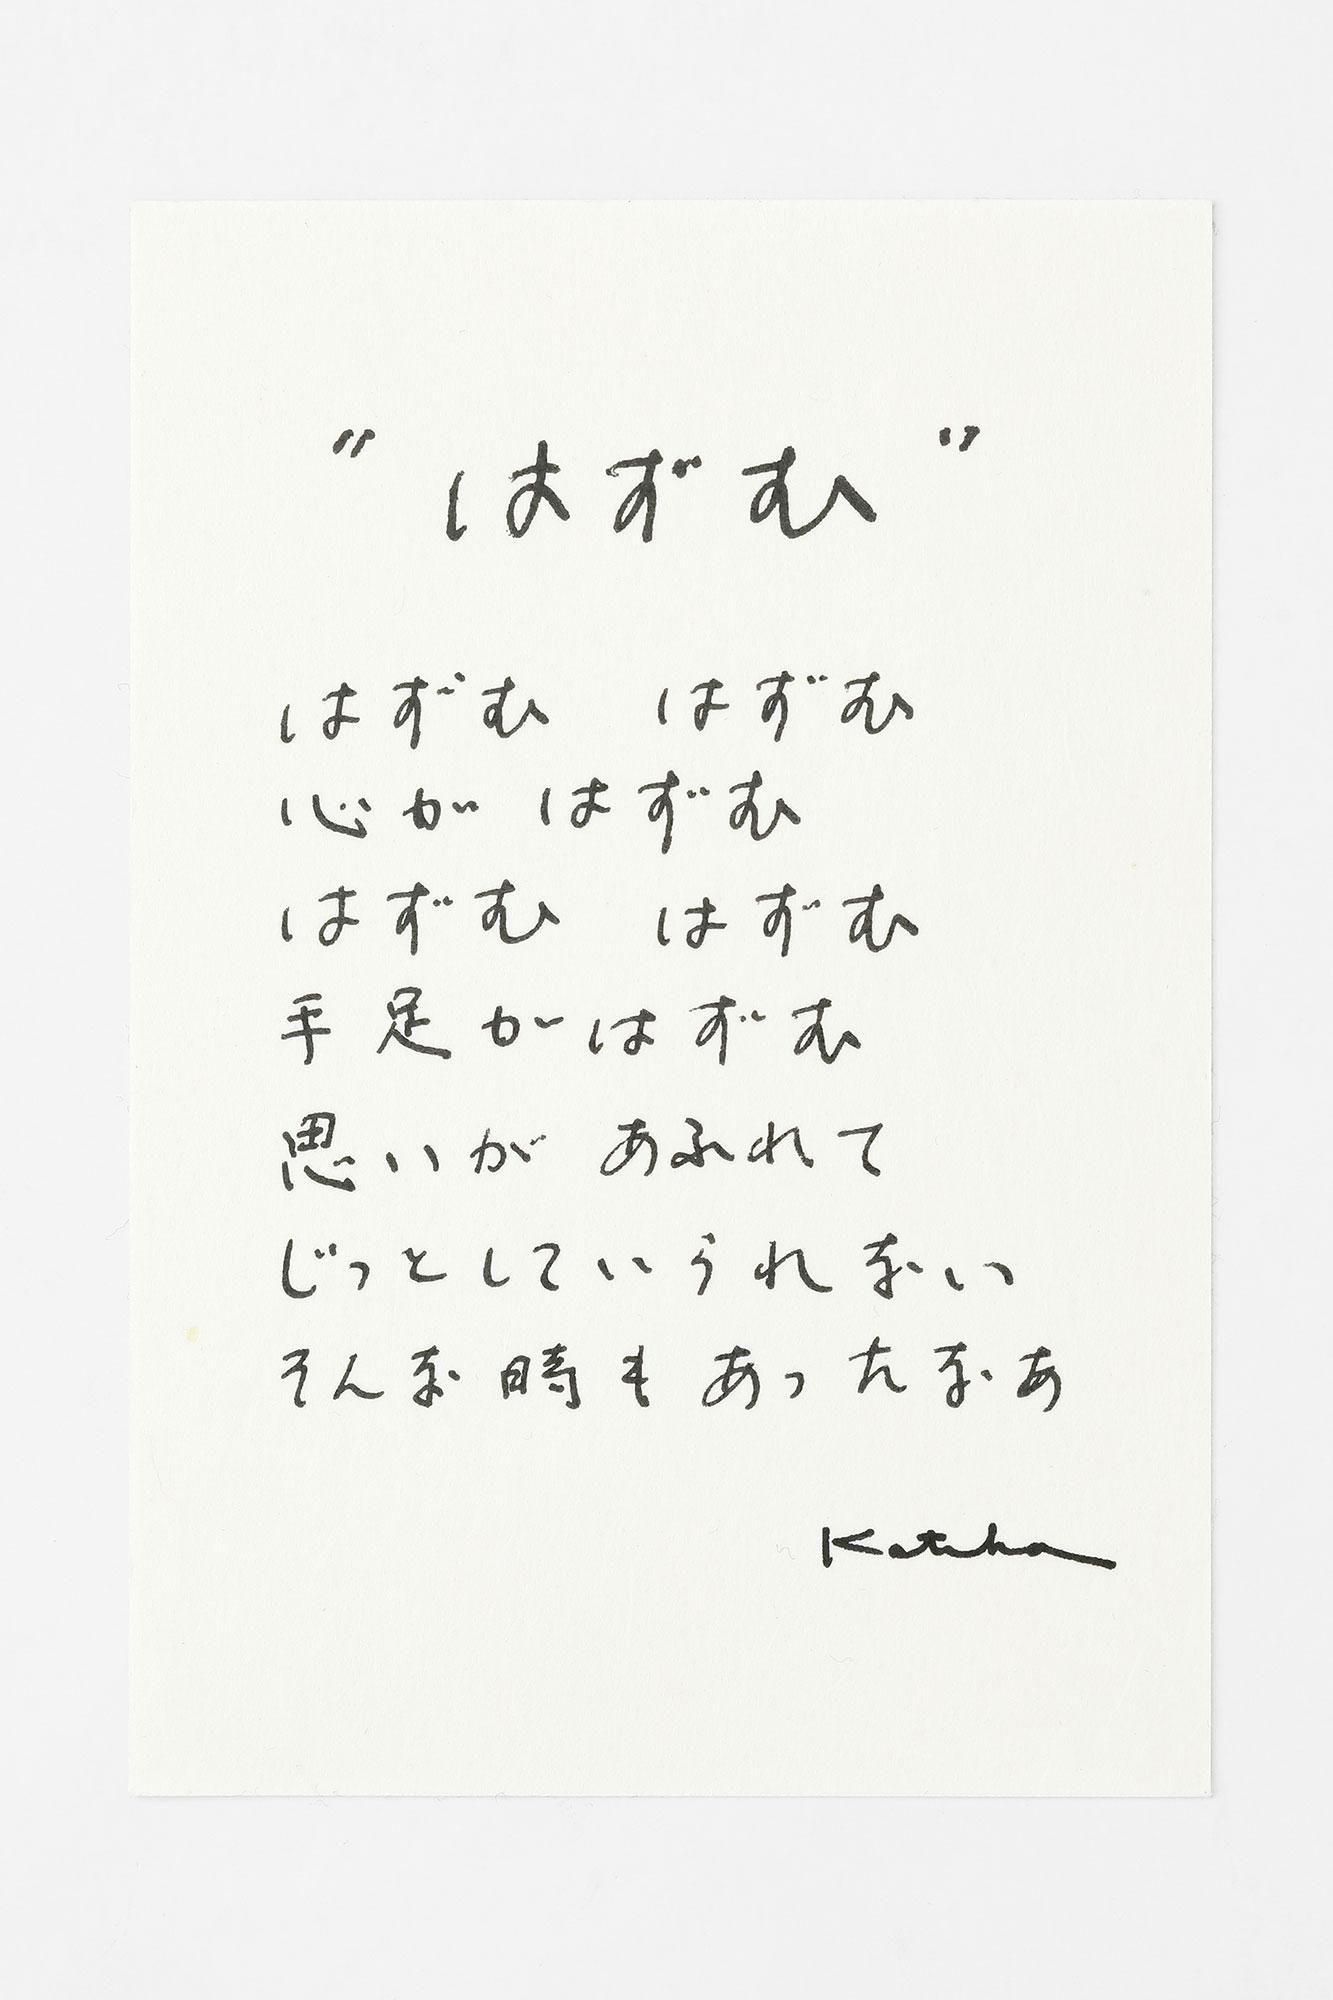 "はずむ"
はずむ　はずむ
心が はずむ
はずむ　はずむ
手足がはずむ
思いが あふれて
じっとしていられない
そんな時も あったなあ